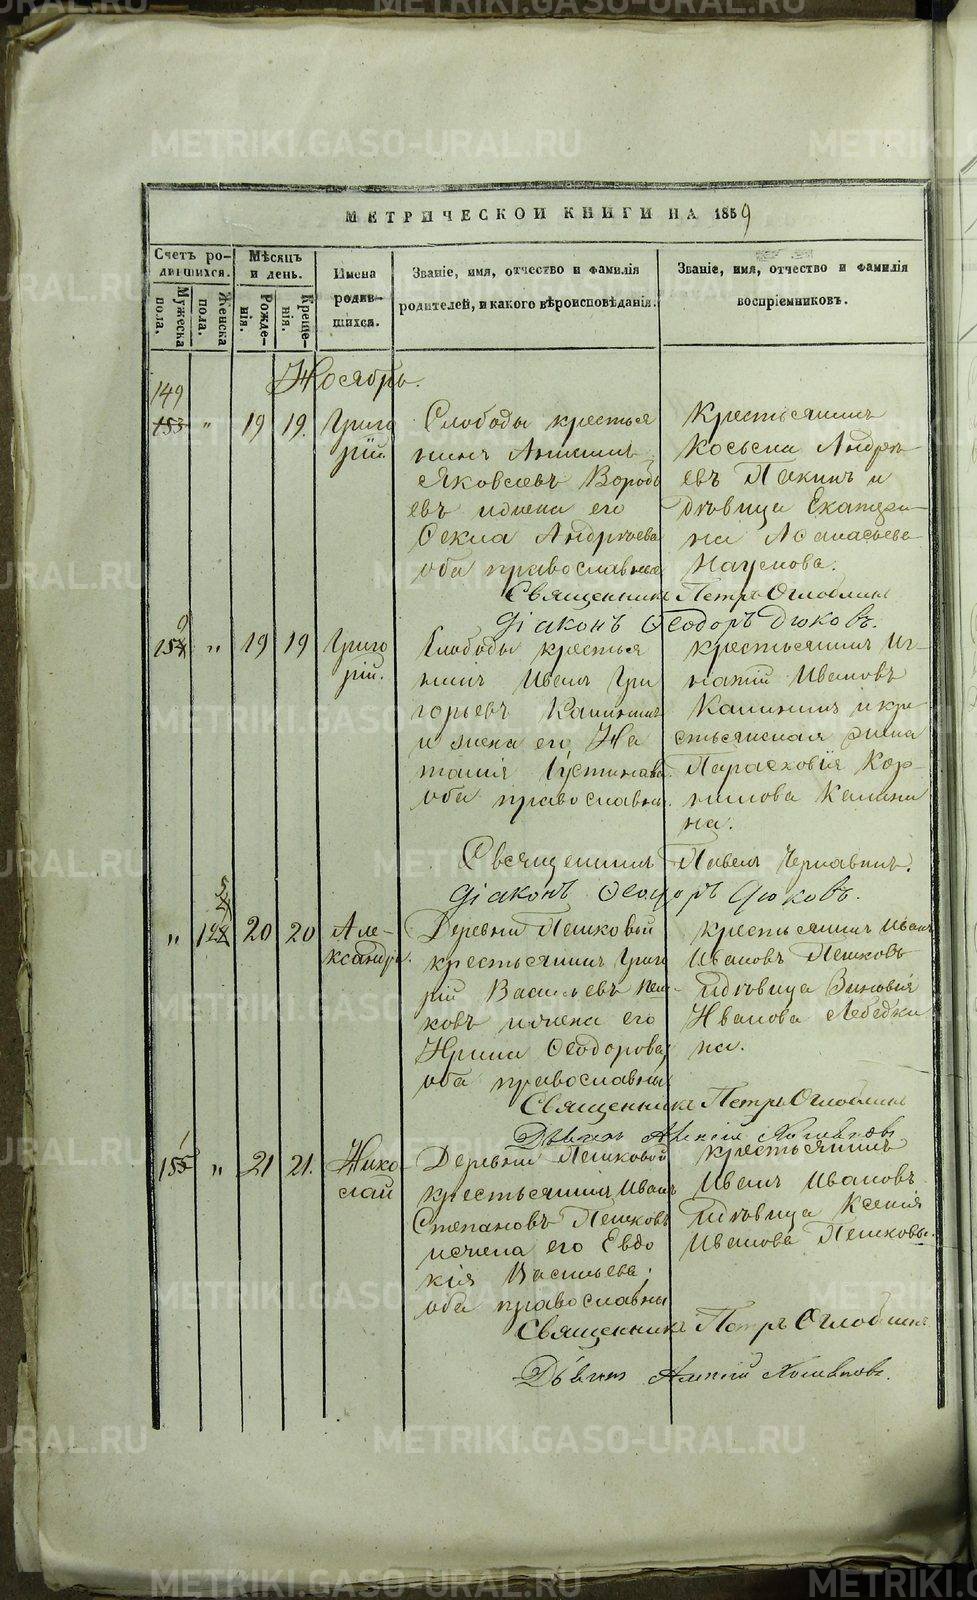 МЕТРИЧЕСКОЙ КНИГИ НА 1859
Счетъ ро-
дившихся.
Мужеска
пола.
Женска
пола.
Мѣсяцъ
и день.
Рожде-
нія.
Креще-
нія.
Имена
родив-
шихся.
Званіе, имя, отчество и фамилія
родителей, и какого вѣроисповѣданія.
Званіе, имя, отчество и фамилія
воспріемниковъ.
Ноябрь.
149
153 " 19 19.
Григо
рій.
Слободы крестья
нинъ
Яковлевъ Воробь
евъ и жена его
Ѳекла Андреева
оба православные
Крестьянинъ
Косьма Андре
евъ Пакинъ и
дѣвица Екатери-
на Аѳанасьева
Наумова.
Священникъ Петръ Оглоблинъ
Діаконъ Ѳеодоръ Дюковъ.
" 19 19
Григо
рій.
Слободы крестья
нинъ Иванъ Гри
горьевъ Калининъ
и жена его На
талія Іустинова
оба православны.
Крестьянинъ Иг
натій Ивановъ
Калининъ и кре
стьянская жена
Парасковія Кор-
нилова Калини
на.
Священникъ Павелъ Чернавинъ.
Діаконъ Ѳеодоръ Дюковъ.
" 20 20
Але-
ксандра.
Деревни Пешковой
крестьянинъ Григо
рій Васильевъ Пеш-
ковъ и жена его
Ирина Ѳеодорова,
оба православны
крестьянинъ Иванъ
Ивановъ Пешковъ
и дѣвица Зиновія
Иванова Лебедки
на.
Священникъ Петръ Оглоблинъ
Дьячекъ Алексій
155 " 21 21.
Нико-
лай
Деревни Пешковой
крестьянинъ Иванъ
Степановъ Пешковъ
и жена его Евдо
кія Васильева,
оба православны
крестьянинъ
Иванъ Ивановъ
и дѣвица Ксенія
Иванова Пешковы.
Священникъ Петръ Оглоблинъ.
Дьячекъ Алексій
METRIKI.GASO-URAL.RU